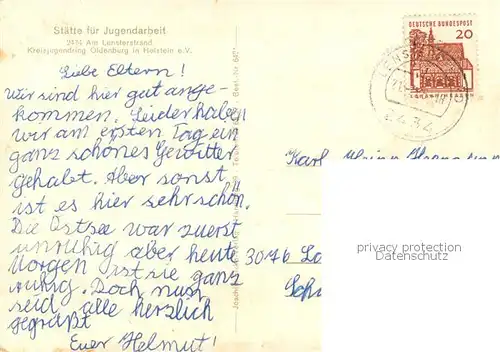 Stätte für Jugendarbeit
2434 Am Lensterstrand
Kreisjugendring Oldenburg in Holstein e.V.
Liebe Eltern!
wir sind hier gut ange-
kommen. Leider haben
wir am ersten Tag ein
ganz schönes Gewitter
gehabt. Aber sonst
ist es hier sehr schön.
Die Ostsee war zuerst
unruhig aber heute
Morgen ist sie ganz
ruhig. Doch nun
seid alle herzlich
gegrüßt
Euer Helmut!
DEUTSCHE BUNDESPOST
20
LORSCH/HESSEN
2434
Karl Heinz
3076
privacy protection
Datenschutz